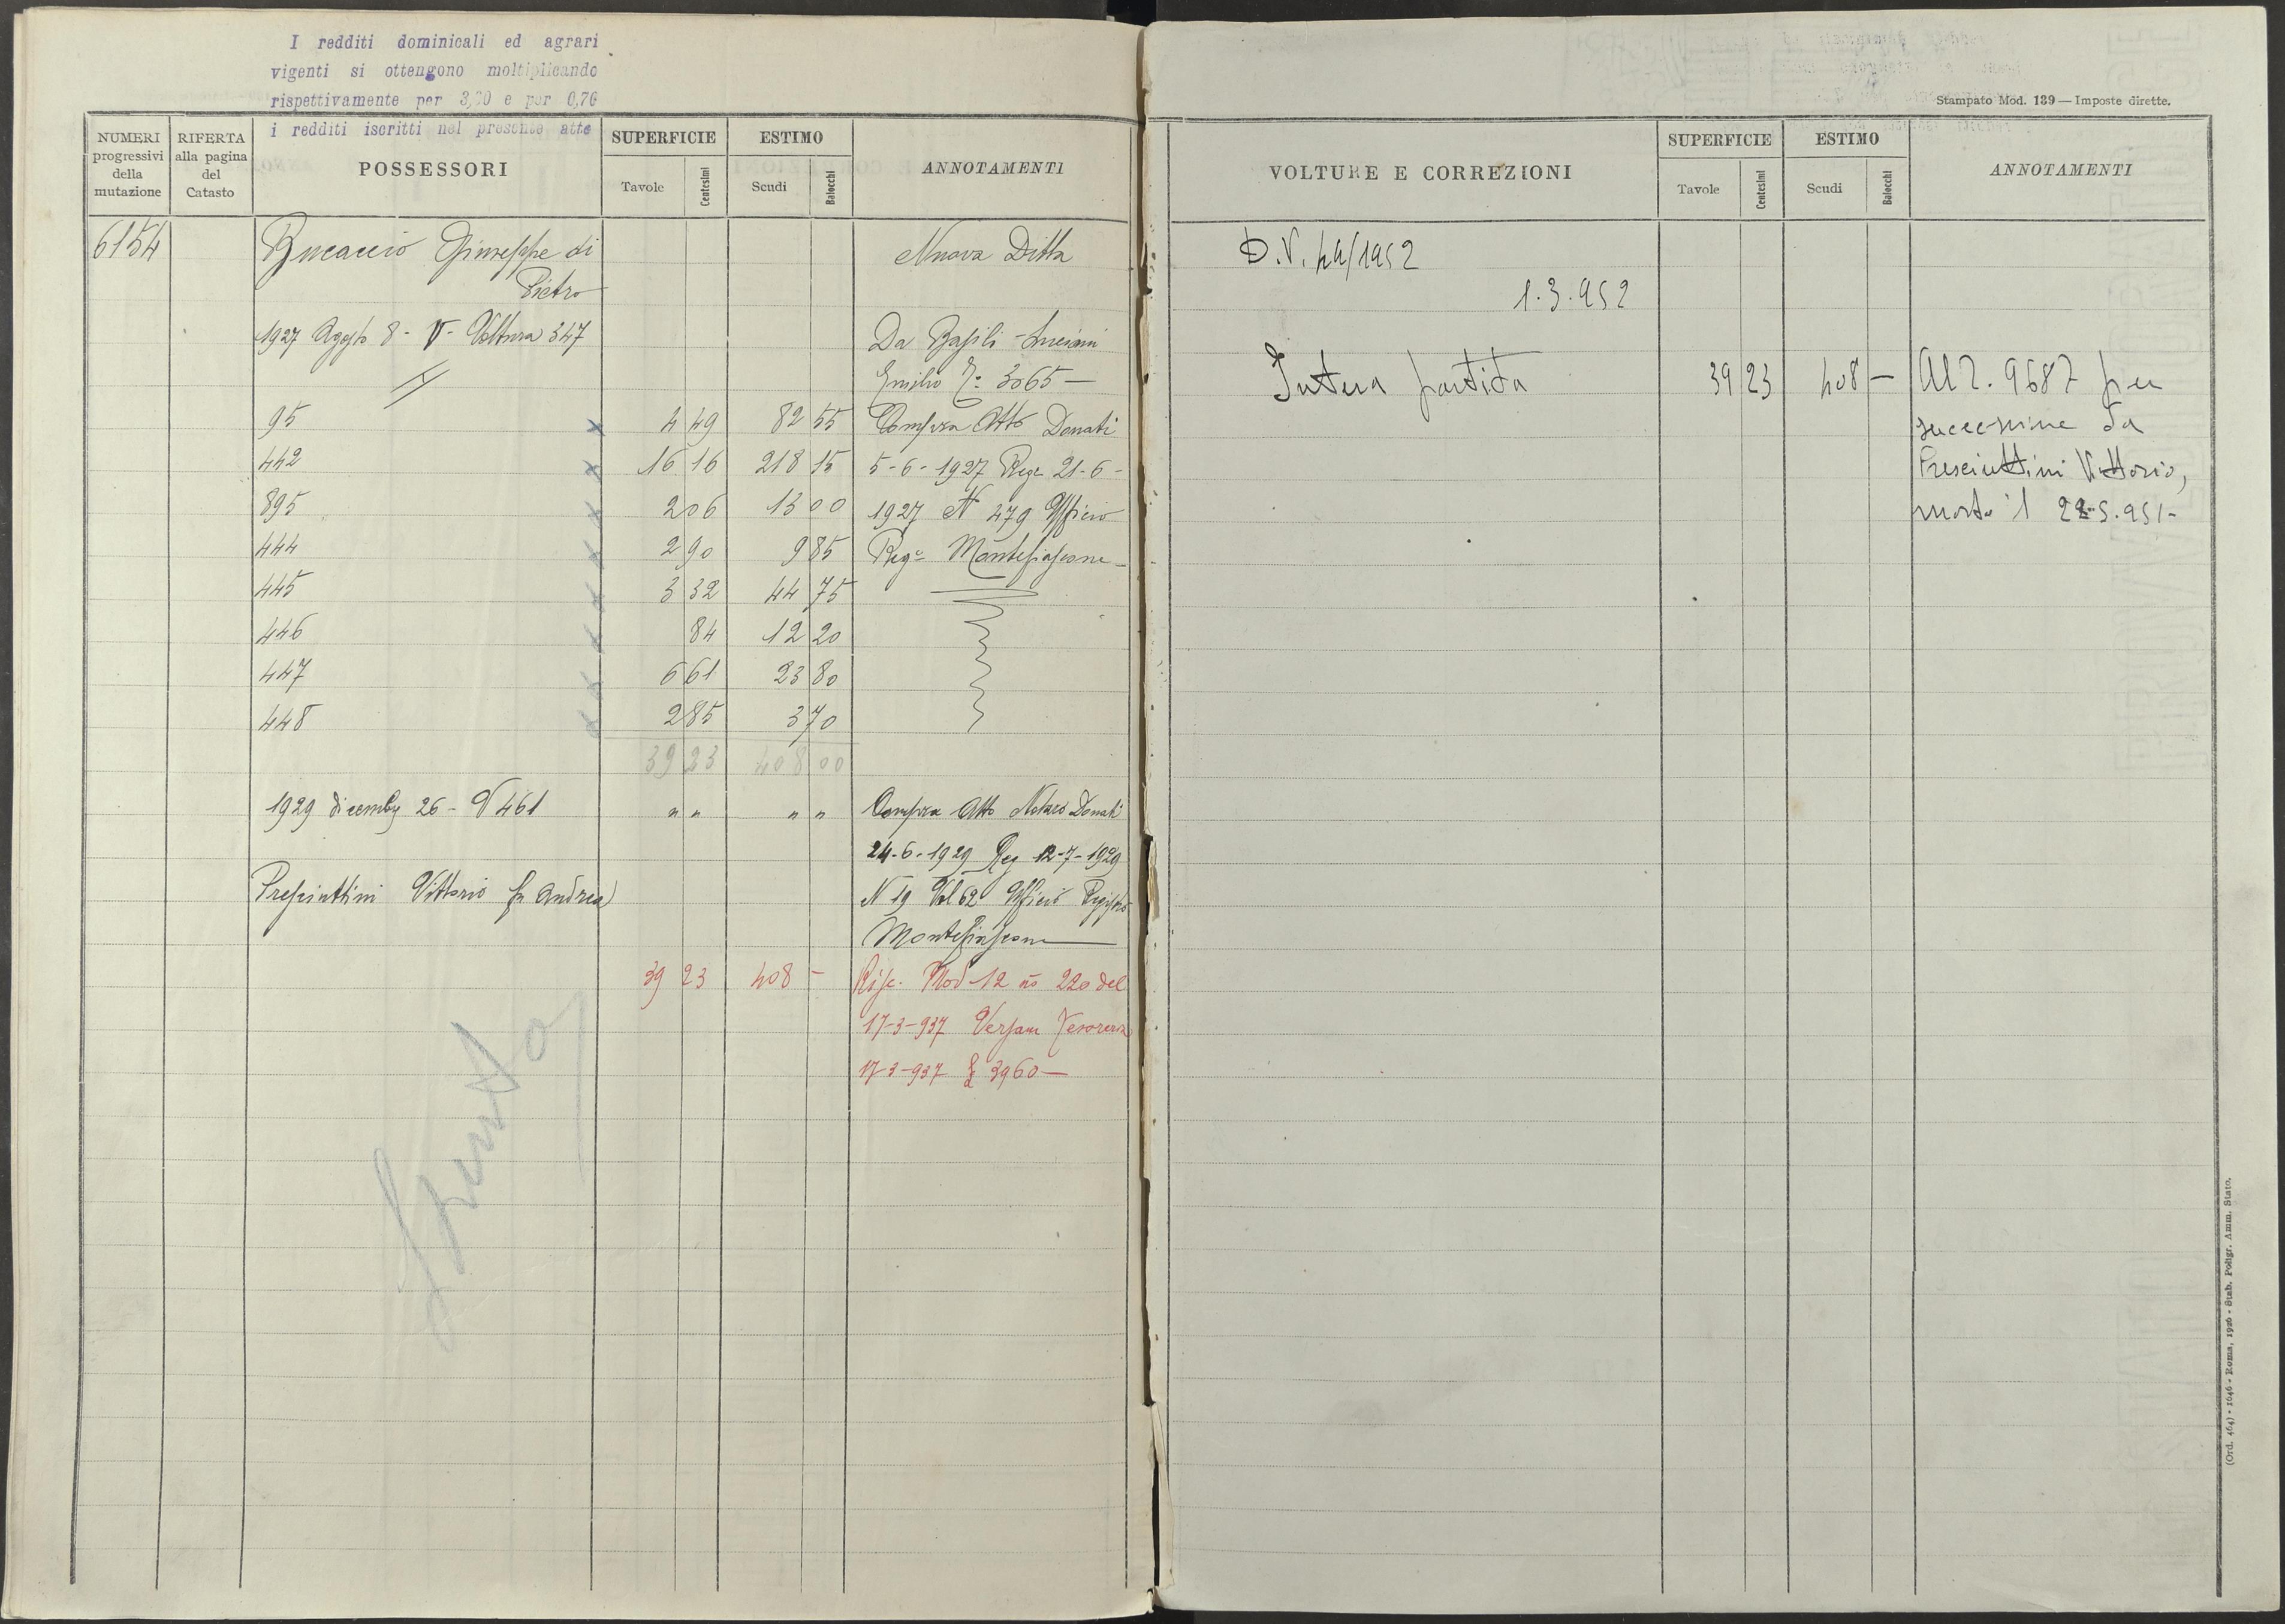 I redditi dominicali ed agrari
vigenti si ottengono moltiplicando
rispettivamente per 3,20 e per 0,70
i redditi iscritti nel presente atto
NUMERI progressivi della mutazione
RIFERTA alla pagina del Catasto
POSSESSORI
SUPERFICIE
Tavole Centesimi
ESTIMO
Scudi Baiocchi
ANNOTAMENTI
6154 Bucaccio Giuseppe di Nuova Ditta
Pietro
1927 Agosto 8 - V - Voltura 347 Da Basili Luciani
Emilio 3065 —
95 4 49 82 55 Compra Atto Donati
442 16 16 218 15 5-6-1927 Reg 21-6-
895 2 06 13 00 1927 N 479 Ufficio
444 2 90 9 85 Reg° Montefiascone
445 3 32 44 75
446 84 12 20
447 6 61 23 80
448 2 85 3 70
39 23 408 00
1929 dicembre 26 - V 461 " " " " Compra Atto Notaro Donati
24-6-1929 Reg 12-7-1929
Presciuttini Vittorio fu Andrea N 19 Vol 62 Ufficio Registro
Montefiascone
39 23 408 - Risc. Mod 12 n° 220 del
17-3-937 Versam Tesoreria
17-3-937 £ 3960 —
Spunto
Stampato Mod. 139 — Imposte dirette.
VOLTURE E CORREZIONI
SUPERFICIE
Tavole Centesimi
ESTIMO
Scudi Baiocchi
ANNOTAMENTI
D.V. 44/1952
1.3.952
Intera partita 39 23 408 — Al 2. 9687 per
successione da
Presciuttini Vittorio,
morto il 22-5.951-
(Ord. 464) - 1046 - Roma, 1926 - Stab. Poligr. Amm. Stato.